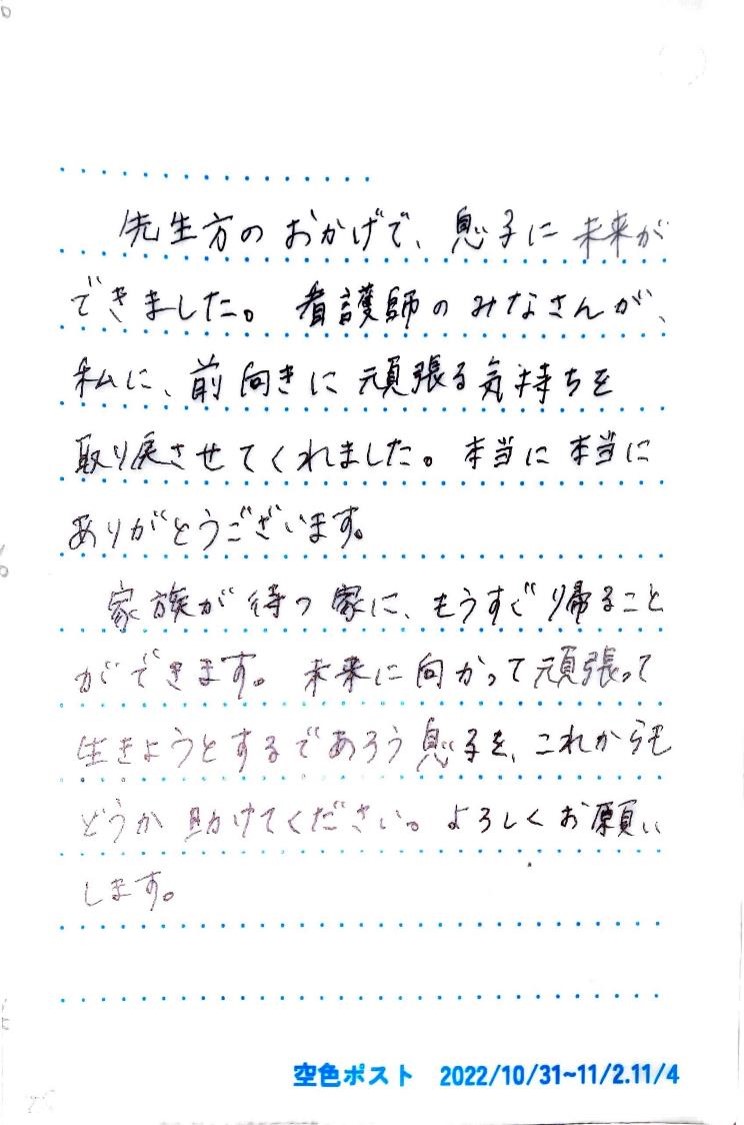 先生方のおかげで、息子に未来が
できました。看護師のみなさんが、
私に、前向きに頑張る気持ちを
取り戻させてくれました。本当に本当に
ありがとうございます。
家族が待つ家に、もうすぐ帰ること
ができます。未来に向かって頑張って
生きようとするであろう息子を、これからも
どうか助けてください。よろしくお願い
します。
空色ポスト 2022/10/31~11/2.11/4